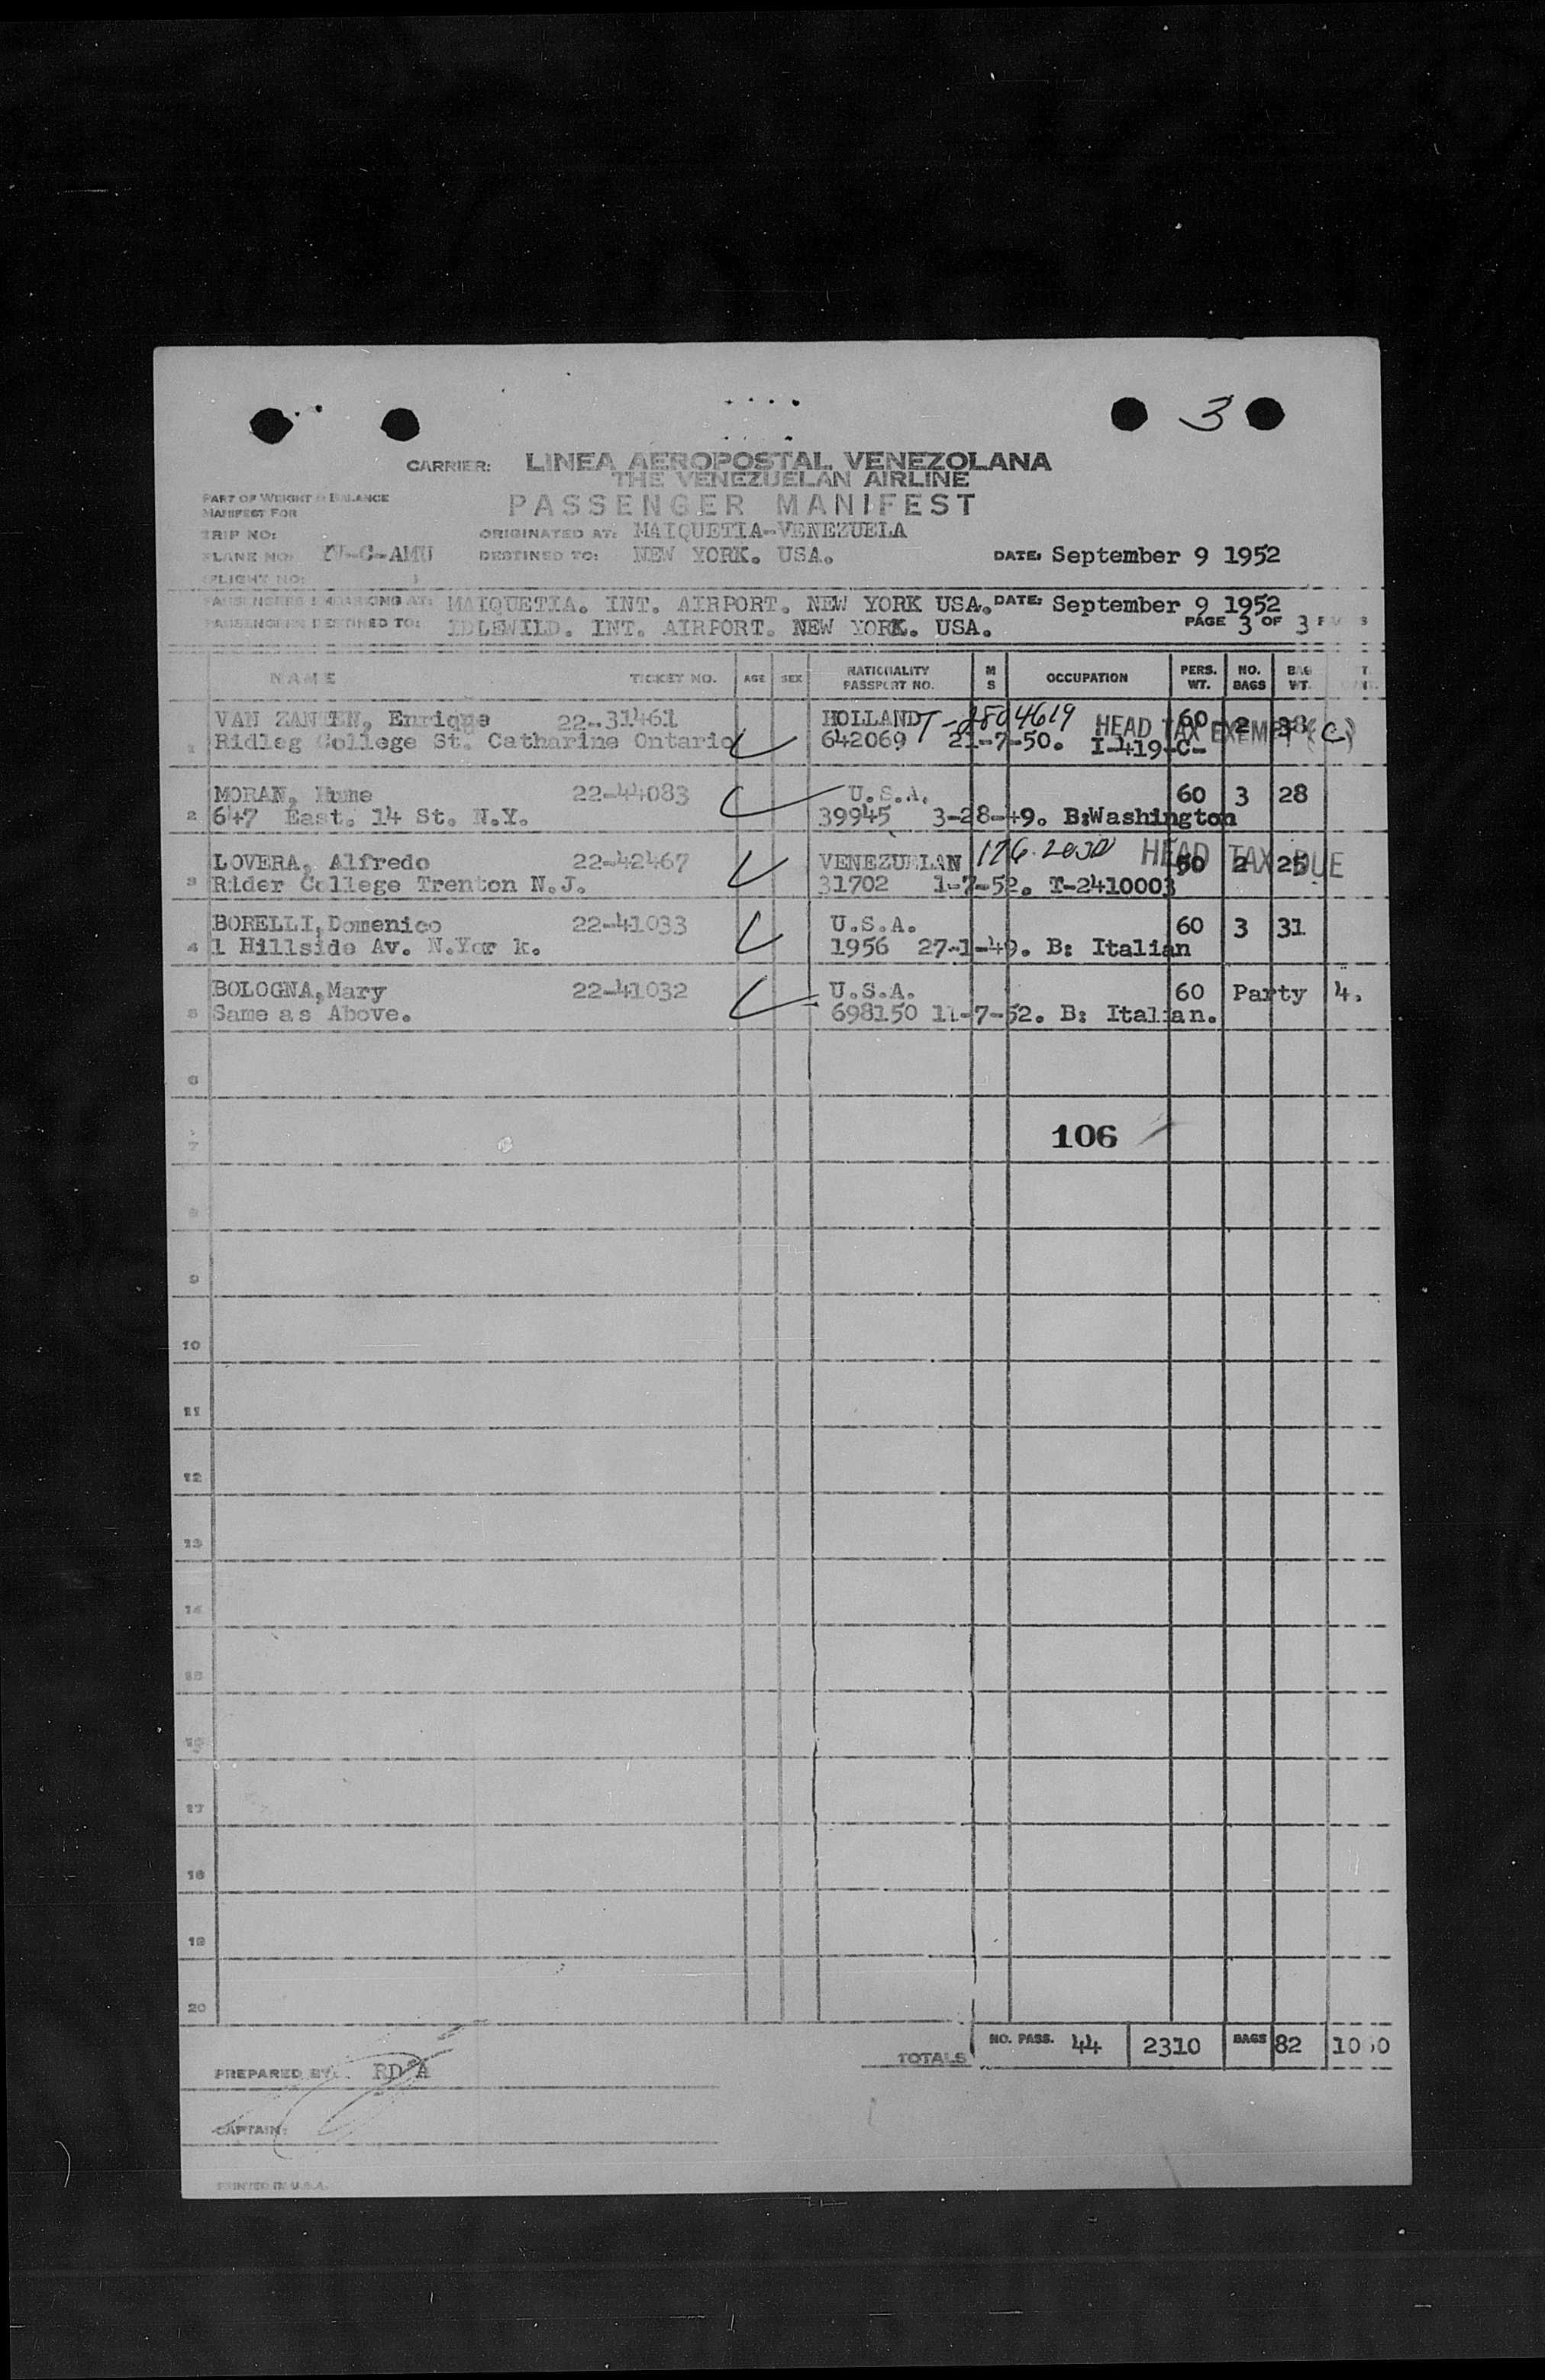 3
CARRIER: LINEA AEROPOSTAL VENEZOLANA
THE VENEZUELAN AIRLINE
PART OF WEIGHT & BALANCE
MANIFEST FOR
PASSENGER MANIFEST
TRIP NO: ORIGINATED AT: MAIQUETIA-VENEZUELA
PLANE NO: YV-C-AMU DESTINED TO: NEW YORK. USA. DATE: September 9 1952
FLIGHT NO:
PASSENGERS EMBARKING AT: MAIQUETIA. INT. AIRPORT. NEW YORK USA. DATE: September 9 1952
PASSENGERS DESTINED TO: IDLEWILD. INT. AIRPORT. NEW YORK. USA. PAGE 3 OF 3 PAGES
NAME TICKET NO. AGE SEX NATIONALITY PASSPORT NO. M S OCCUPATION PERS. WT. NO. BAGS BAG WT.
1 VAN ZANTEN, Enrique 22-31461 HOLLAND T-2804619 HEAD TAX EXEMPT (C) 60 2 38
Ridleg College St. Catharine Ontario 642069 21-7-50. I-419-C-
2 MORAN, Hume 22-44083 U.S.A. 60 3 28
647 East. 14 St. N.Y. 39945 3-28-49. B:Washington
3 LOVERA, Alfredo 22-42467 VENEZUELAN HEAD TAX DUE 2 25
Rider College Trenton N.J. 31702 1-7-52. T-2410003
4 BORELLI, Domenico 22-41033 U.S.A. 60 3 31
1 Hillside Av. N.Yor k. 1956 27-1-49. B: Italian
5 BOLOGNA, Mary 22-41032 U.S.A. 60 Party 4.
Same as Above. 698150 11-7-52. B: Italian.
6
7 106
8
9
10
11
12
13
14
15
16
17
18
19
20
TOTALS NO. PASS. 44 2310 BAGS 82
PREPARED BY:
CAPTAIN:
PRINTED IN U.S.A.